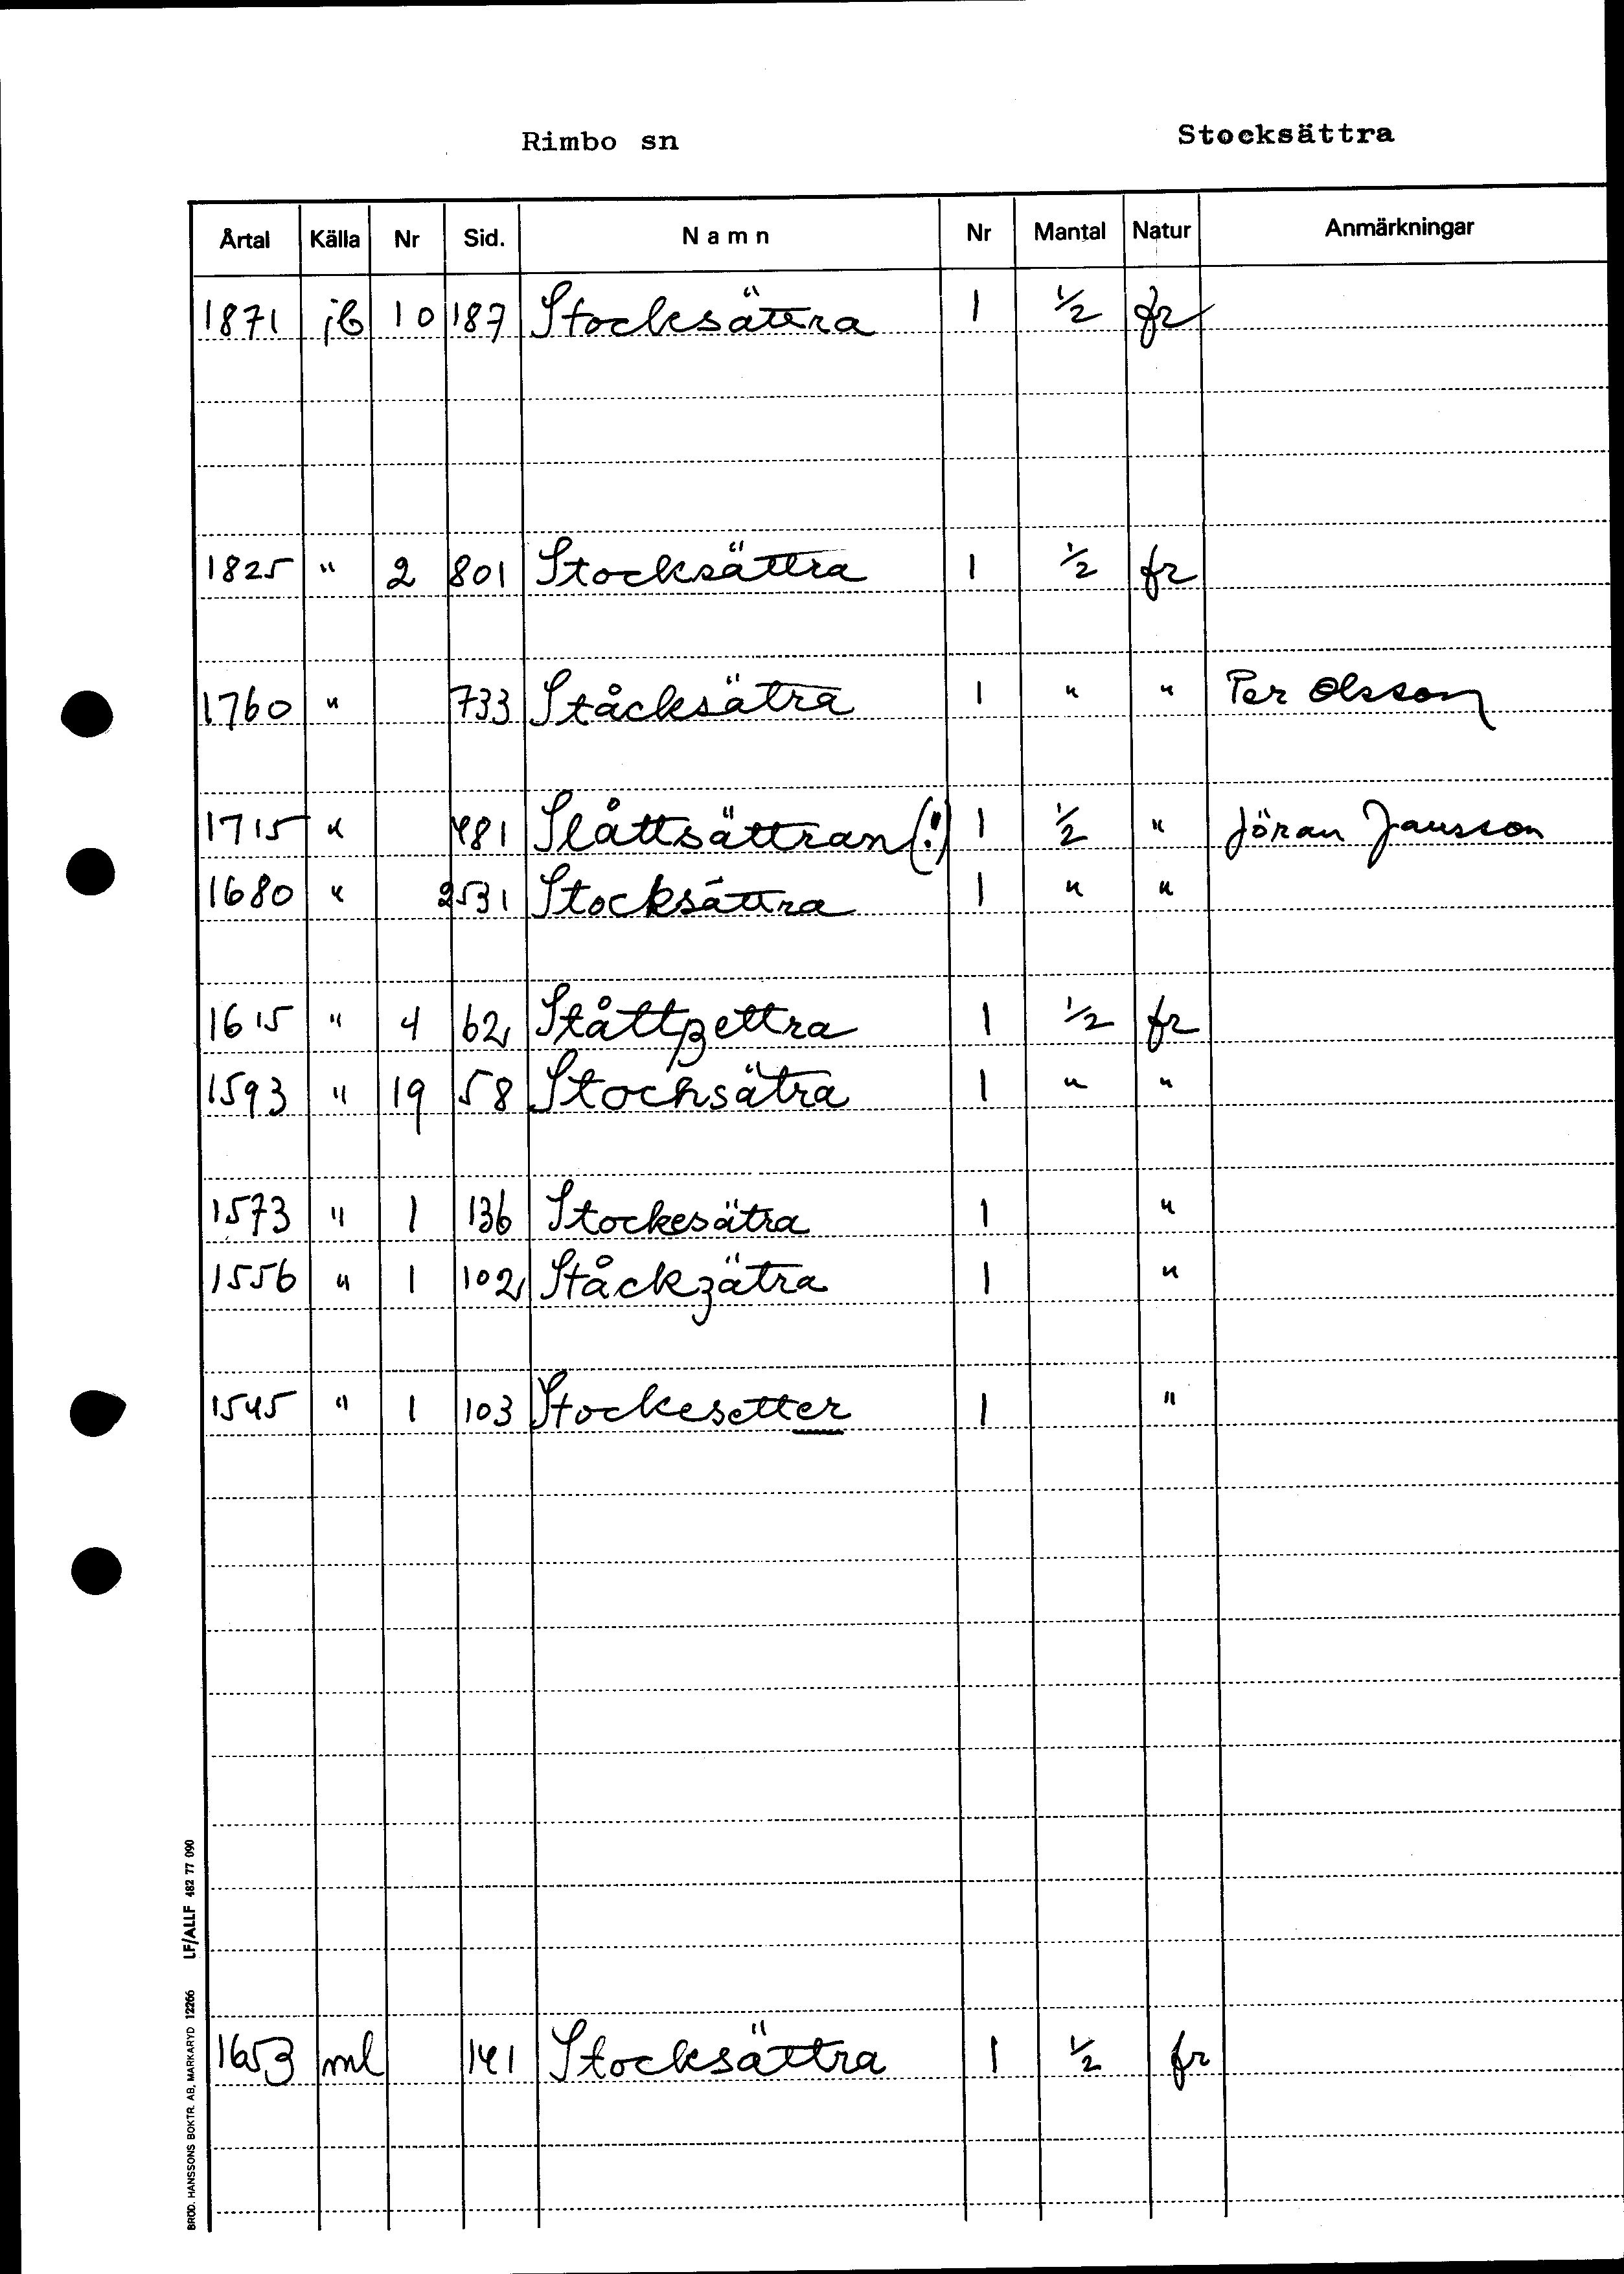 Rimbo sn Stocksättra
Årtal Källa Nr Sid. Namn Nr Mantal Natur Anmärkningar
1871 jb 10 187 Stocksättra 1 1/2 fr
1825 " 2 801 Stocksättra 1 1/2 fr
1760 " 733 Ståcksätra 1 " " Per Olsson
1715 " 481 Slåttsättran (!) 1 1/2 " Jöran Jansson
1680 " 2531 Stocksättra 1 " "
1615 " 4 62v Ståttßettra 1 1/2 fr
1593 " 19 58 Stochsätra 1 " "
1573 " 1 136 Stockesätra 1 "
1556 " 1 102v Ståckzätra 1 "
1545 " 1 103 Stockesetter 1 "
1653 ml 141 Stocksättra 1 1/2 fr
BROD. HANSSONS BOKTR. AB, MARKARYD 12266 LF/ALLF 482 77 090